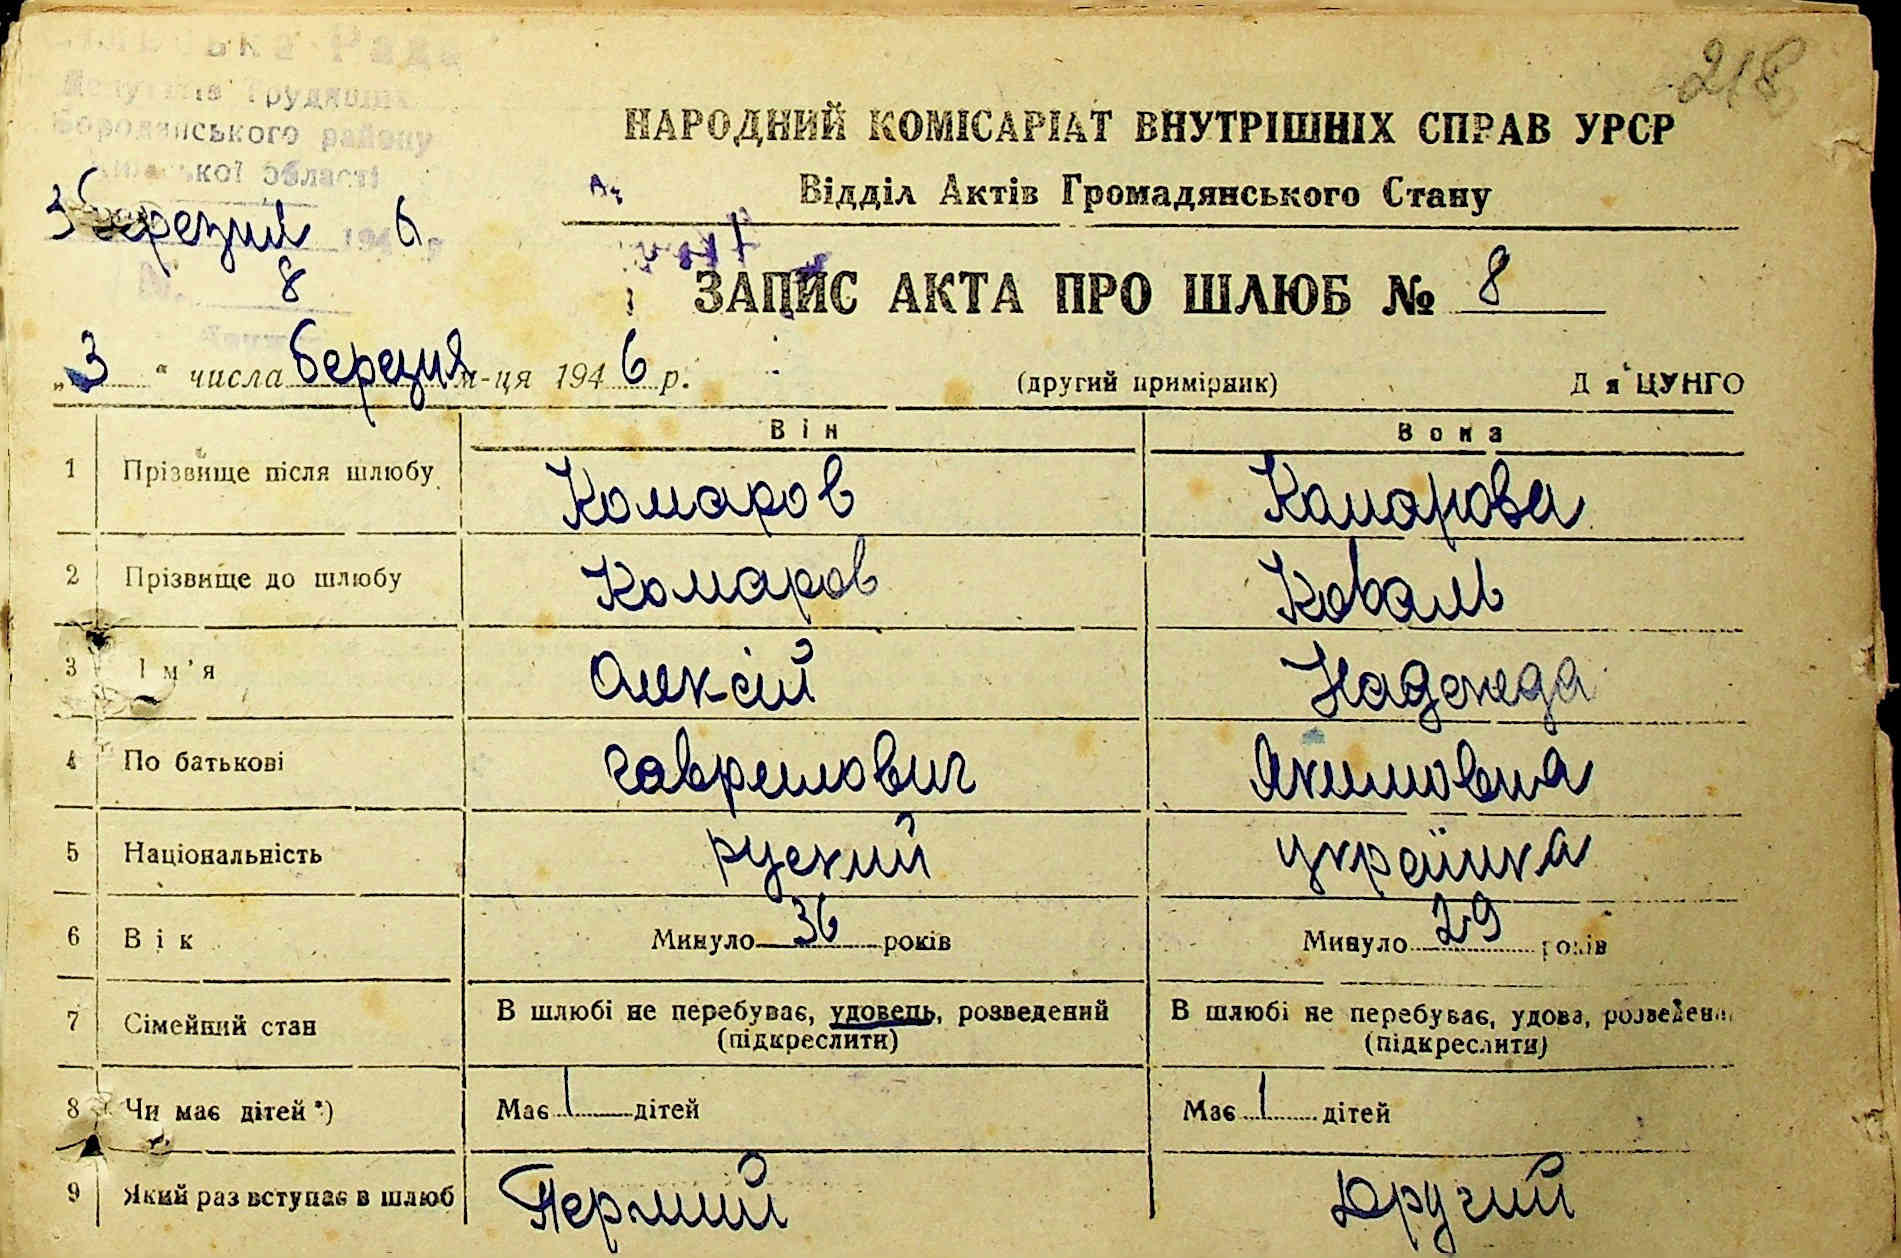 218
Рада
Депутатів Трудящих
Бородянського району
Київської області
3 березня 1946 р
№ 8
НАРОДНИЙ КОМІСАРІАТ ВНУТРІШНІХ СПРАВ УРСР
Відділ Актів Громадянського Стану
ЗАПИС АКТА ПРО ШЛЮБ № 8
„3“ числа березня м-ця 1946 р.
(другий примірник) Для ЦУНГО
Він Вона
1 Прізвище після шлюбу Комаров Комарова
2 Прізвище до шлюбу Комаров Коваль
3 Ім’я Олексій Надежда
4 По батькові Гаврилович Якимовна
5 Національність руский українка
6 Вік Минуло 36 років Минуло 29 років
7 Сімейний стан В шлюбі не перебуває, удовець, розведений В шлюбі не перебуває, удова, розведена
(підкреслити) (підкреслити)
8 Чи має дітей*) Має 1 дітей Має 1 дітей
9 Який раз вступає в шлюб Перший Другий